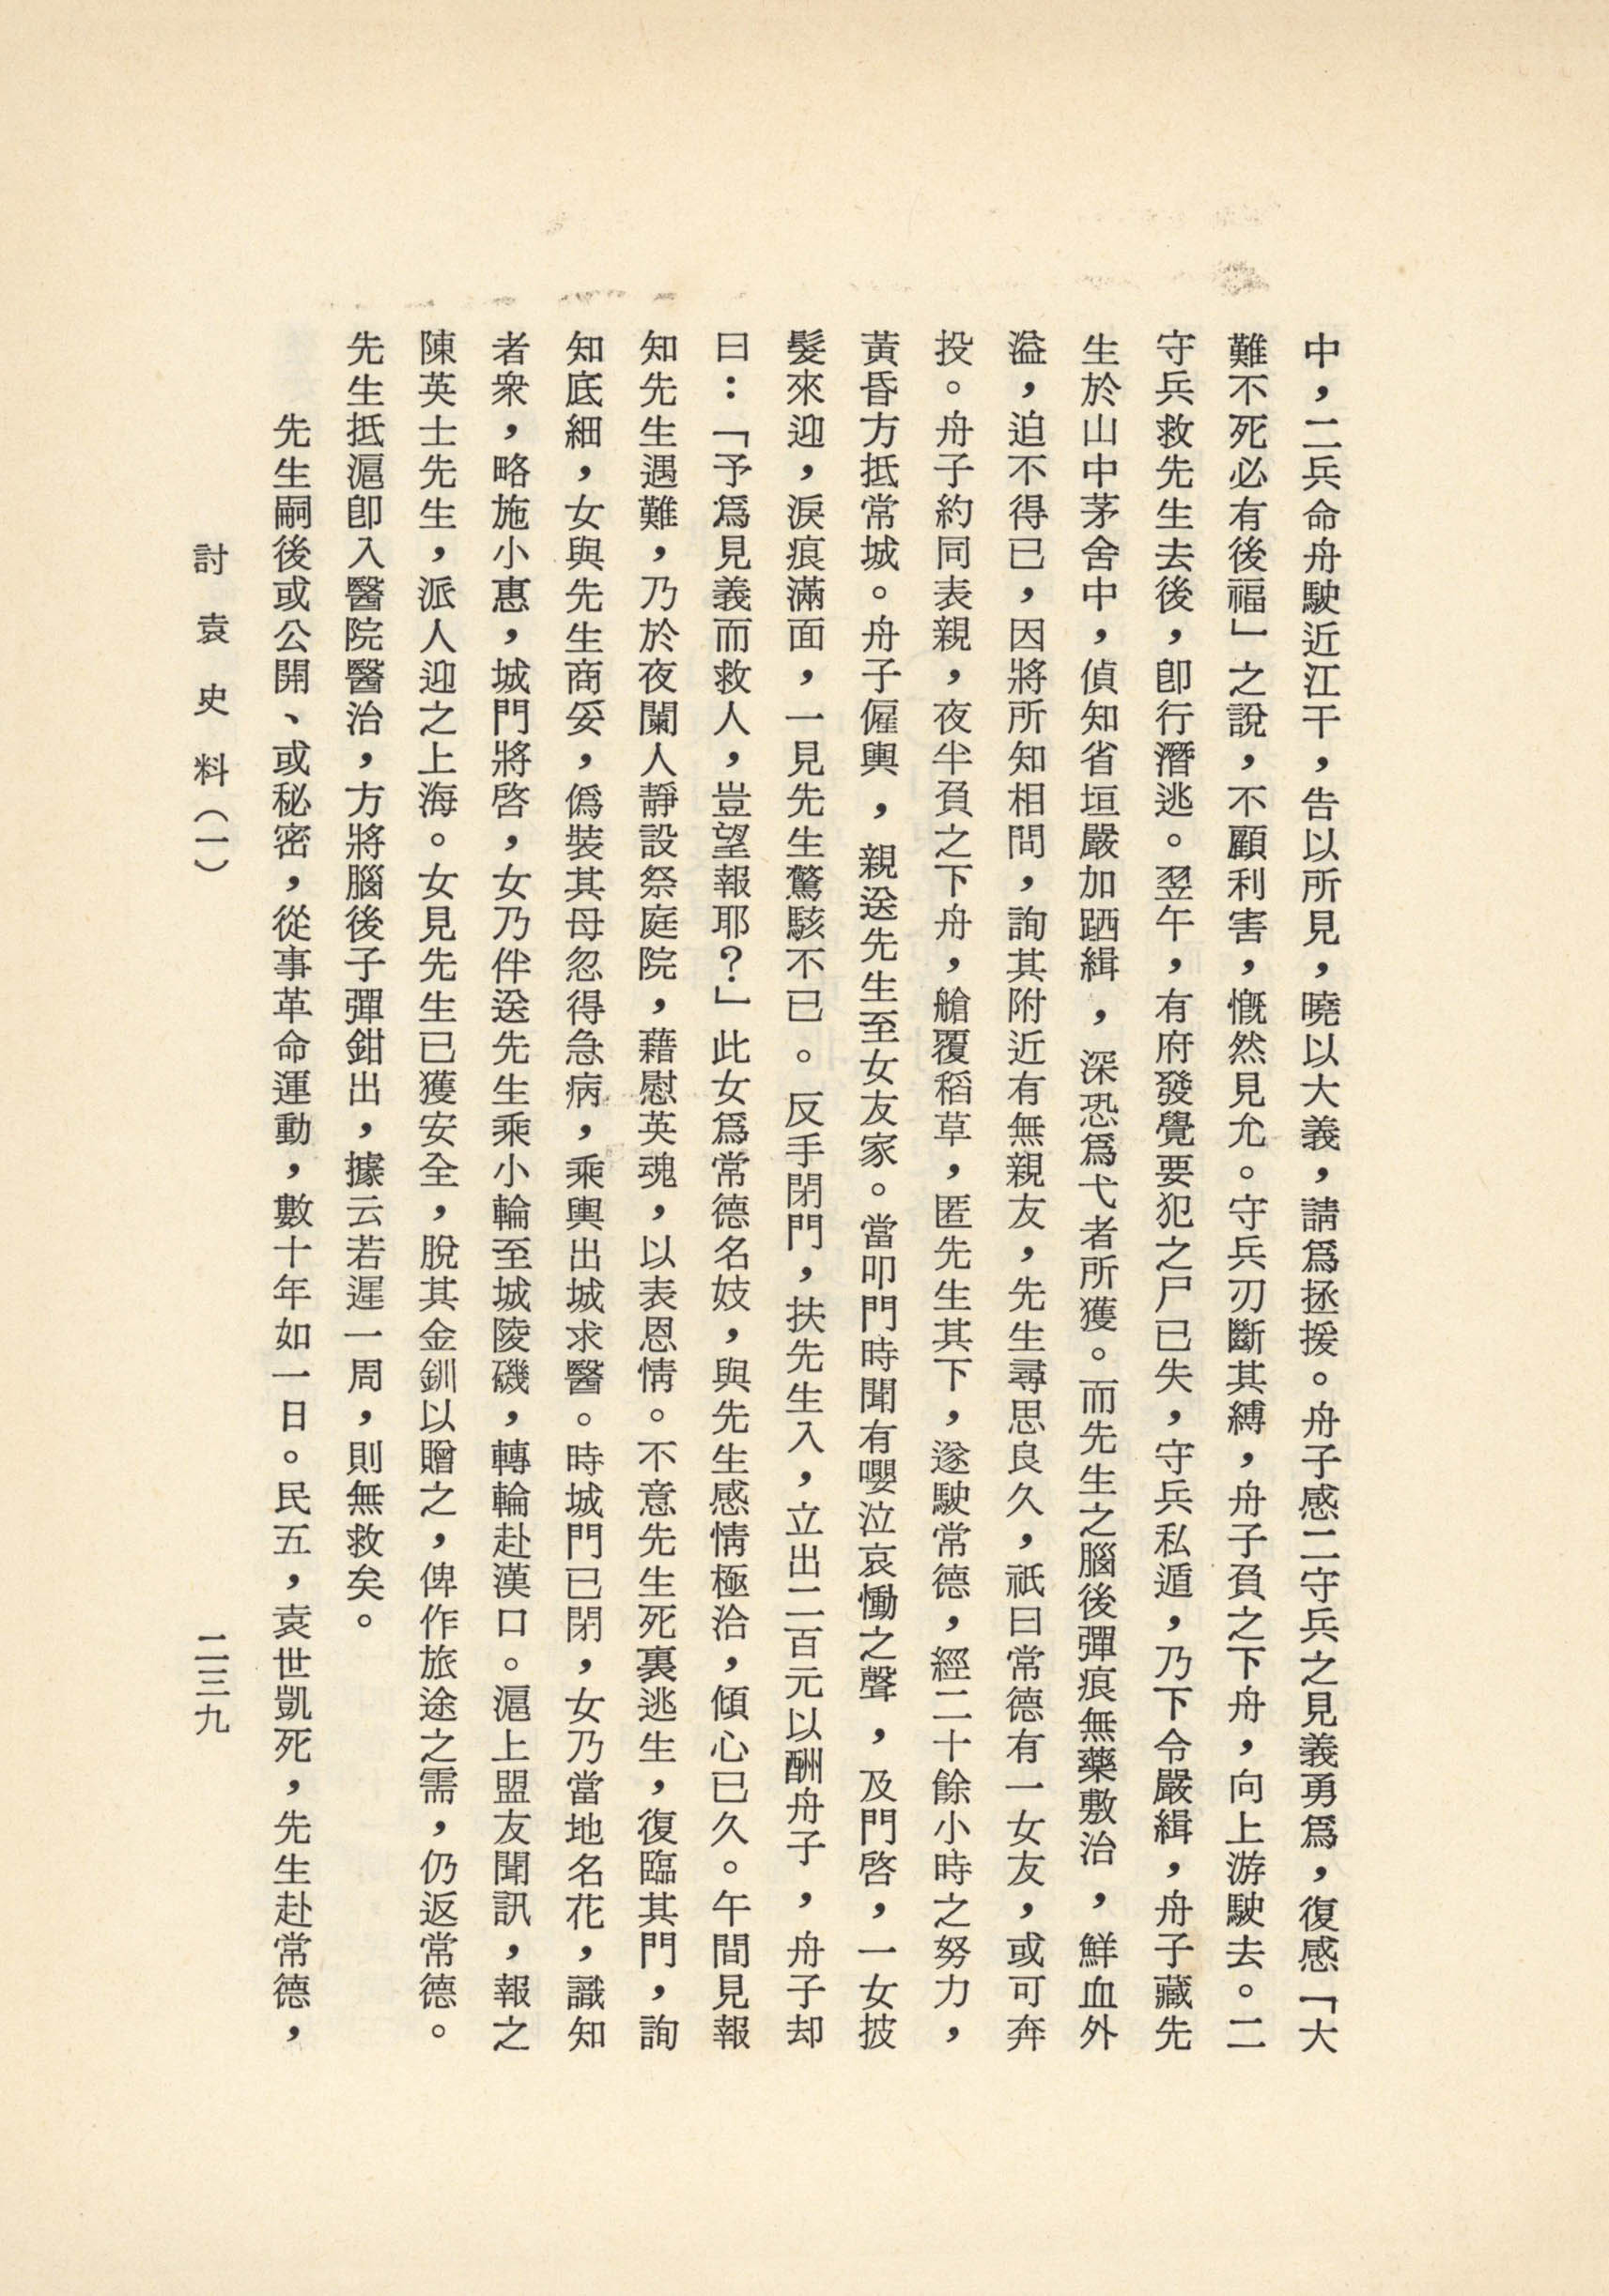 中，二兵命舟駛近江干，告以所見，曉以大義，請爲拯援。舟子感二守兵之見義勇爲，復感「大
難不死必有後福」之說，不顧利害，慨然見允。守兵刃斷其縛，舟子負之下舟，向上游駛去。二
守兵救先生去後，卽行潛逃。翌午，有府發覺要犯之尸已失，守兵私遁，乃下令嚴緝，舟子藏先
生於山中茅舍中，偵知省垣嚴加跴緝，深恐爲弋者所獲。而先生之腦後彈痕無藥敷治，鮮血外
溢，迫不得已，因將所知相問，詢其附近有無親友，先生尋思良久，祇曰常德有一女友，或可奔
投。舟子約同表親，夜半負之下舟，艙覆稻草，匿先生其下，遂駛常德，經二十餘小時之努力，
黃昏方抵常城。舟子僱輿，親送先生至女友家。當叩門時聞有嚶泣哀慟之聲，及門啓，一女披
髮來迎，淚痕滿面，一見先生驚駭不已。反手閉門，扶先生入，立出二百元以酬舟子，舟子却
曰：「予爲見義而救人，豈望報耶？」此女爲常德名妓，與先生感情極洽，傾心已久。午間見報
知先生遇難，乃於夜闌人靜設祭庭院，藉慰英魂，以表恩情。不意先生死裏逃生，復臨其門，詢
知底細，女與先生商妥，僞裝其母忽得急病，乘輿出城求醫。時城門已閉，女乃當地名花，識知
者衆，略施小惠，城門將啓，女乃伴送先生乘小輪至城陵磯，轉輪赴漢口。滬上盟友聞訊，報之
陳英士先生，派人迎之上海。女見先生已獲安全，脫其金釧以贈之，俾作旅途之需，仍返常德。
先生抵滬卽入醫院醫治，方將腦後子彈鉗出，據云若遲一周，則無救矣。
先生嗣後或公開、或秘密，從事革命運動，數十年如一日。民五，袁世凱死，先生赴常德，
討袁史料（一）
二三九